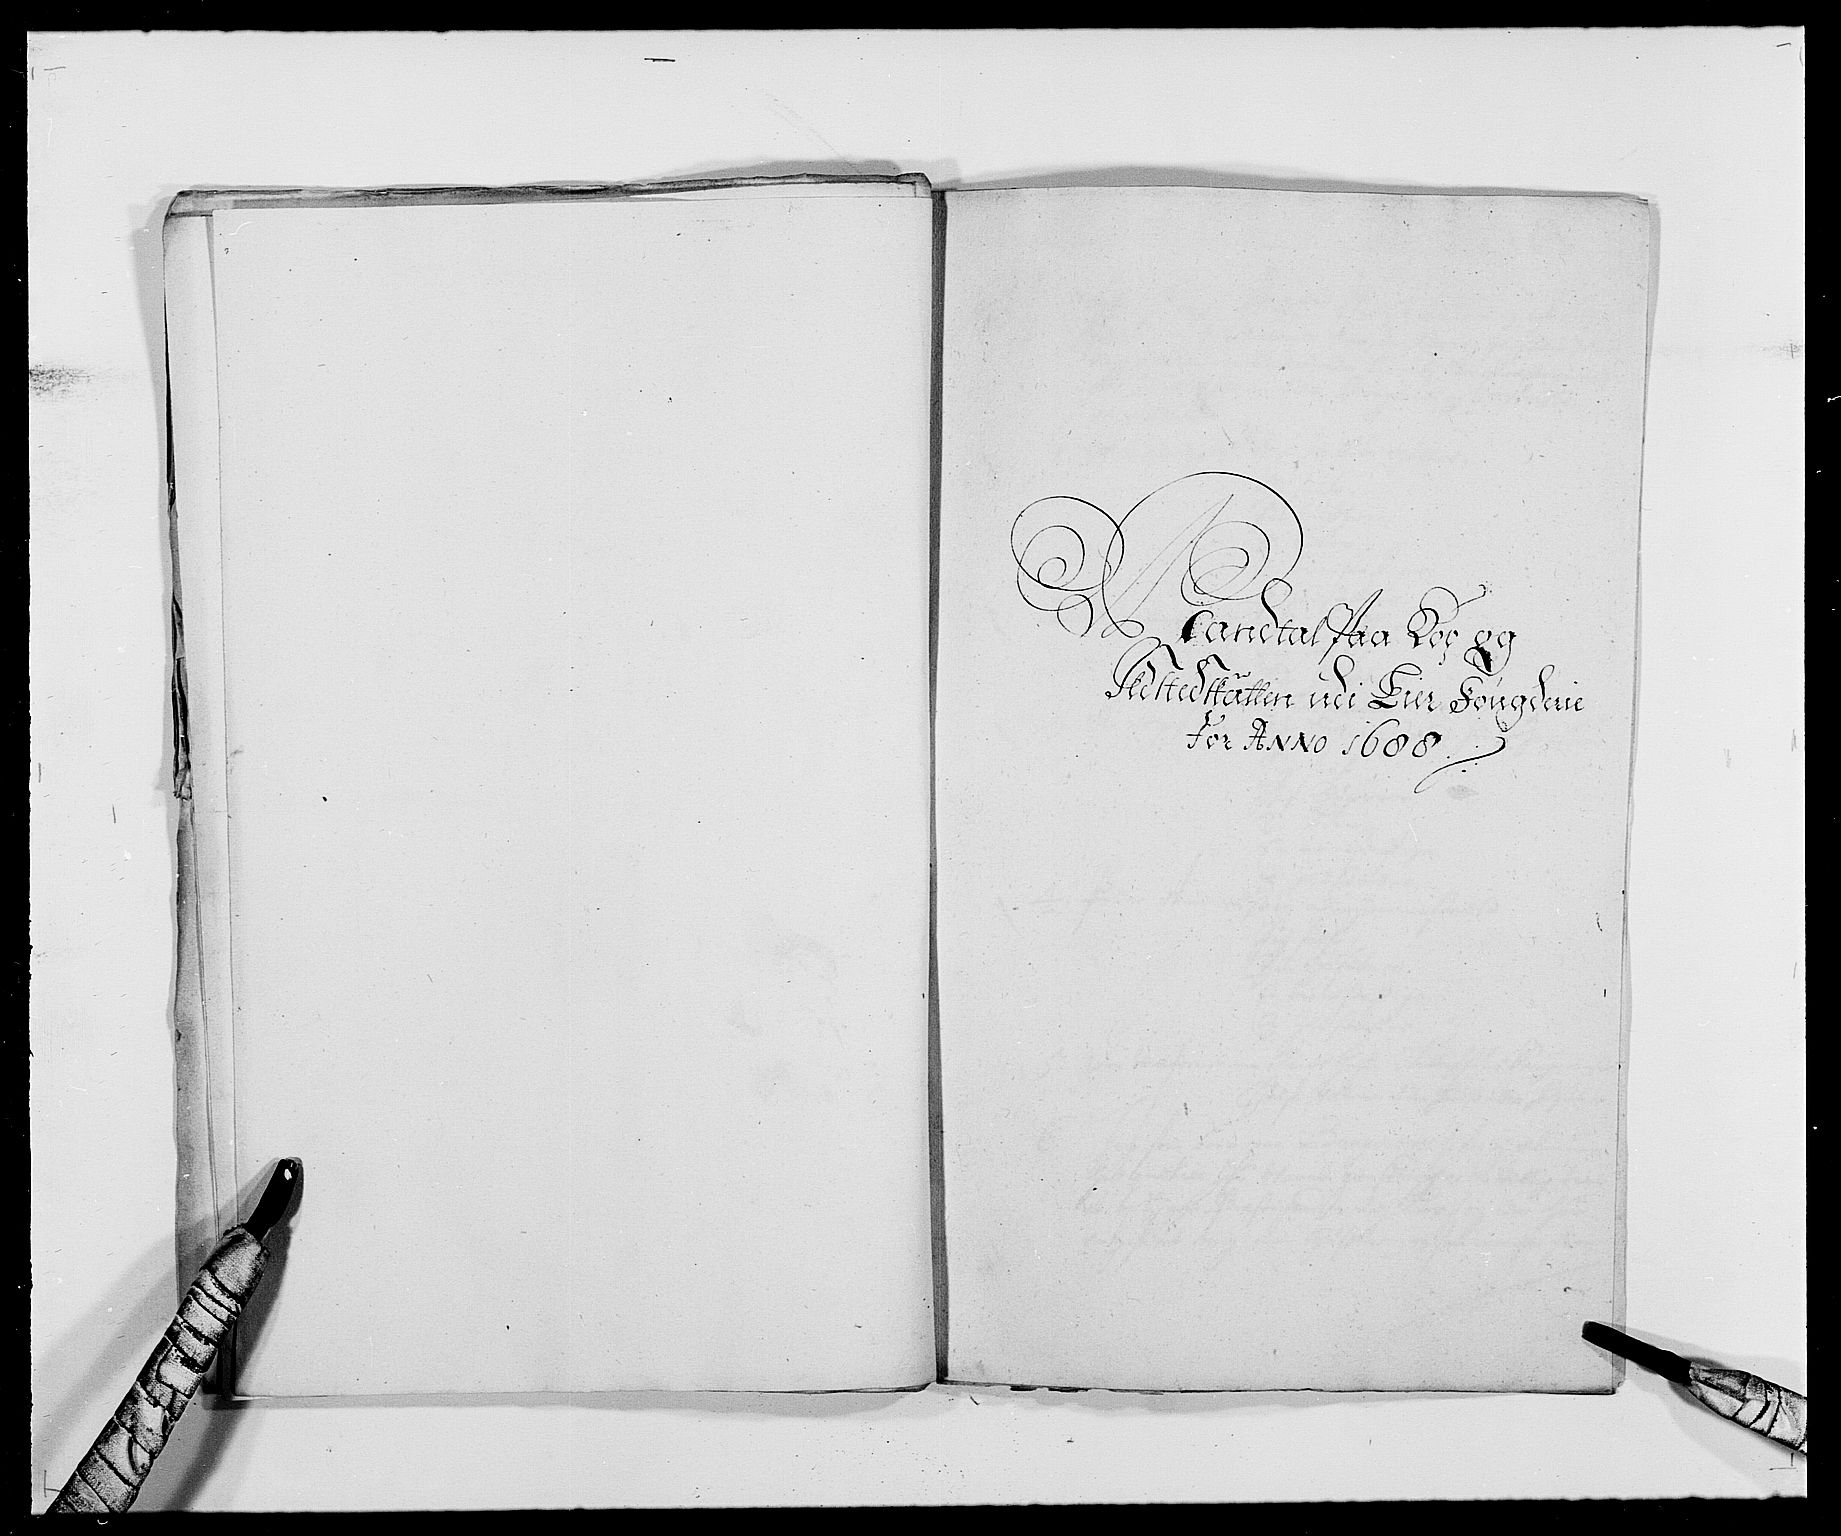 Mandtal Paa Roß og
Ildstedskatten udi Lier Fougderie
for ANNO 1688.